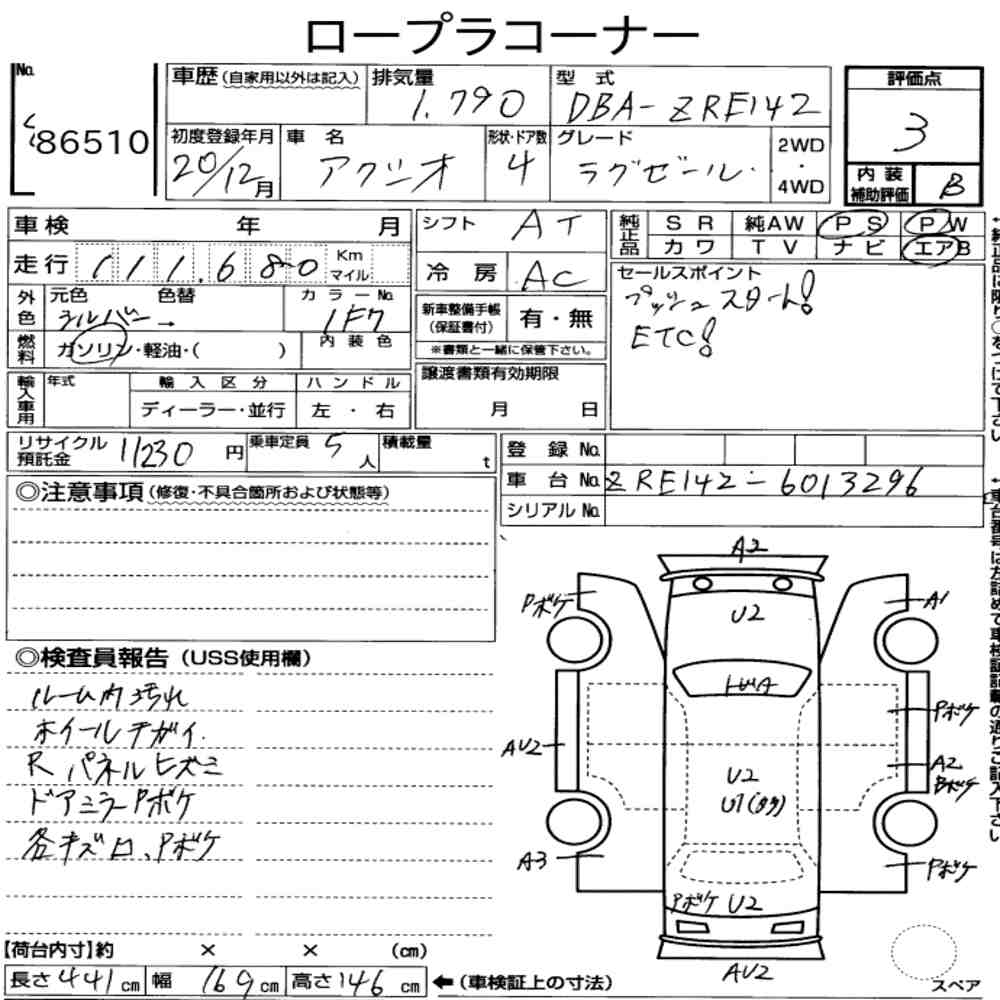 ロープラコーナー
No. 86510
車歴 (自家用以外は記入)
排気量 1.790
型式 DBA-ZRE142
評価点 3
初度登録年月 20/12月
車名 アクシオ
形状・ドア数 4
グレード ラグゼール
2WD・4WD
内装補助評価 B
車検 年 月
シフト AT
純正品 SR 純AW PS PW
カワ TV ナビ エアB
走行 111.680 Km マイル
冷房 AC
セールスポイント
プッシュスタート!
ETC!
外色 元色 シルバー→ 色替 カラーNo. 1F7
新車整備手帳(保証書付) 有・無
※書類と一緒に保管下さい。
燃料 ガソリン・軽油・( ) 内装色
譲渡書類有効期限 月 日
輸入車用 年式 輸入区分 ハンドル
ディーラー・並行 左・右
リサイクル預託金 11230円
乗車定員 5人
積載量 t
登録No.
車台No. ZRE142-6013296
シリアルNo.
◎注意事項(修復・不具合箇所および状態等)
◎検査員報告(USS使用欄)
ルーム内汚れ
ホイールチガイ.
Rパネルヒズミ
ドアミラーPボケ
各キズ凹、Pボケ
A2
Pボケ
U2
A1
トビA
Pボケ
AU2
U2
A2
Bボケ
A3
Pボケ
Pボケ U2
AU2
スペア
【荷台内寸】約 × × (cm)
長さ441cm 幅169cm 高さ146cm ←(車検証上の寸法)
←純正品に限り○をつけて下さい
←車台番号は左詰めで車検証記載の通りご記入下さい